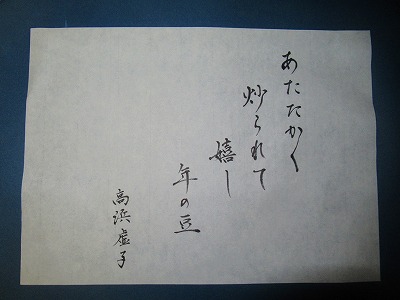 あたたかく
炒られて
嬉し
年の豆
高浜虚子